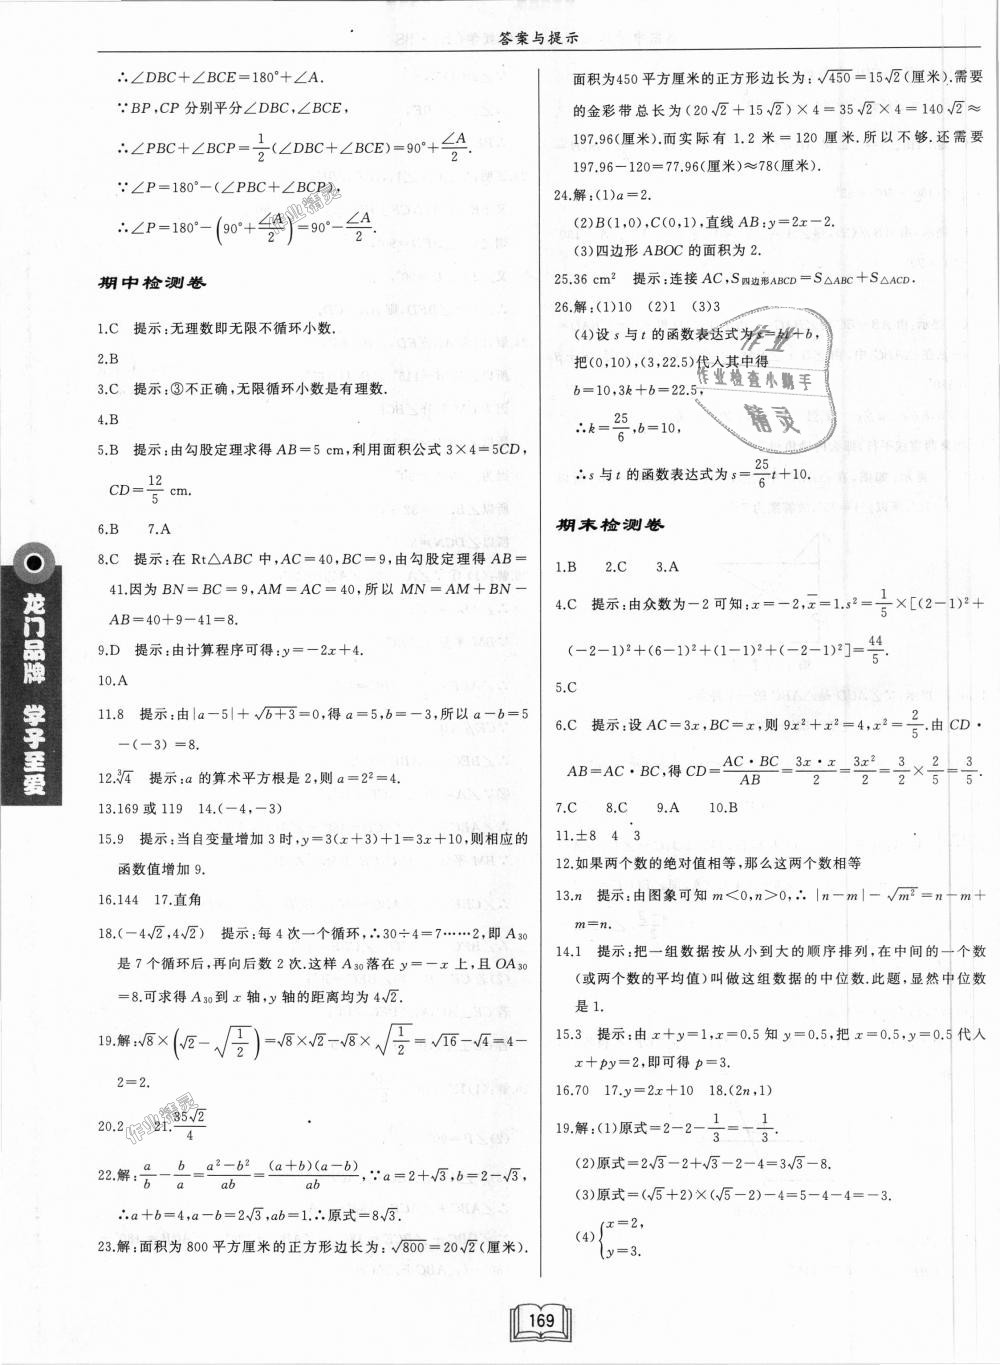 答案与提示
∴∠DBC+∠BCE=180°+∠A.
∵BP,CP 分别平分∠DBC,∠BCE,
∴∠PBC+∠BCP=1/2(∠DBC+∠BCE)=90°+∠A/2.
∵∠P=180°-(∠PBC+∠BCP),
∴∠P=180°-(90°+∠A/2)=90°-∠A/2.
期中检测卷
1.C 提示:无理数即无限不循环小数.
2.B
3.C 提示:③不正确,无限循环小数是有理数.
4.B
5.B 提示:由勾股定理求得 AB=5 cm,利用面积公式 3×4=5CD,
CD=12/5 cm.
6.B 7.A
8.C 提示:在 Rt△ABC 中,AC=40,BC=9,由勾股定理得 AB=
41.因为 BN=BC=9,AM=AC=40,所以 MN=AM+BN-
AB=40+9-41=8.
9.D 提示:由计算程序可得:y=-2x+4.
10.A
11.8 提示:由|a-5|+√(b+3)=0,得 a=5,b=-3,所以 a-b=5
-(-3)=8.
12.∛4 提示:a 的算术平方根是 2,则 a=2²=4.
13.169 或 119 14.(-4,-3)
15.9 提示:当自变量增加 3 时,y=3(x+3)+1=3x+10,则相应的
函数值增加 9.
16.144 17.直角
18.(-4√2,4√2) 提示:每 4 次一个循环,∴30÷4=7……2,即 A₃₀
是 7 个循环后,再向后数 2 次.这样 A₃₀落在 y=-x 上,且 OA₃₀
=8.可求得 A₃₀到 x 轴,y 轴的距离均为 4√2.
19.解:√8×(√2-√(1/2))=√8×√2-√8×√(1/2)=√16-√4=4-
2=2.
20.2 21.35√2/4
22.解:a/b-b/a=(a²-b²)/ab=(a+b)(a-b)/ab,∵a=2+√3,b=2-√3,
∴a+b=4,a-b=2√3,ab=1.∴原式=8√3.
23.解:面积为 800 平方厘米的正方形边长为:√800=20√2(厘米).
面积为450 平方厘米的正方形边长为:√450=15√2(厘米).需要
的金彩带总长为(20√2+15√2)×4=35√2×4=140√2≈
197.96(厘米).而实际有 1.2 米=120 厘米.所以不够.还需要
197.96-120=77.96(厘米)≈78(厘米).
24.解:(1)a=2.
(2)B(1,0),C(0,1),直线 AB:y=2x-2.
(3)四边形 ABOC 的面积为 2.
25.36 cm² 提示:连接 AC,S四边形ABCD=S△ABC+S△ACD.
26.解:(1)10 (2)1 (3)3
(4)设 s 与 t 的函数表达式为 s=kt+b,
把(0,10),(3,22.5)代入其中得
b=10,3k+b=22.5,
∴k=25/6,b=10,
∴s 与 t 的函数表达式为 s=25/6t+10.
期末检测卷
1.B 2.C 3.A
4.C 提示:由众数为-2 可知:x=-2,x̄=1.s²=1/5×[(2-1)²+
(-2-1)²+(6-1)²+(1-1)²+(-2-1)²]=44/5.
5.C
6.C 提示:设 AC=3x,BC=x,则 9x²+x²=4,x²=2/5.由 CD·
AB=AC·BC,得 CD=AC·BC/AB=3x·x/2=3x²/2=3/2×2/5=3/5.
7.C 8.C 9.A 10.B
11.±8 4 3
12.如果两个数的绝对值相等,那么这两个数相等
13.n 提示:由图象可知 m<0,n>0,∴|n-m|-√m²=n-m+
m=n.
14.1 提示:把一组数据按从小到大的顺序排列,在中间的一个数
(或两个数的平均值)叫做这组数据的中位数.此题,显然中位数
是 1.
15.3 提示:由 x+y=1,x=0.5 知 y=0.5,把 x=0.5,y=0.5 代入
x+py=2,即可得 p=3.
16.70 17.y=2x+10 18.(2n,1)
19.解:(1)原式=2-2-1/3=-1/3.
(2)原式=2√3-2+√3-2-4=3√3-8.
(3)原式=(√5+2)×(√5-2)-4=5-4-4=-3.
(4){x=2,
y=3.
龙门品牌 学子至爱
作业精灵
作业精灵
作业
作业检查小助手
精灵
169